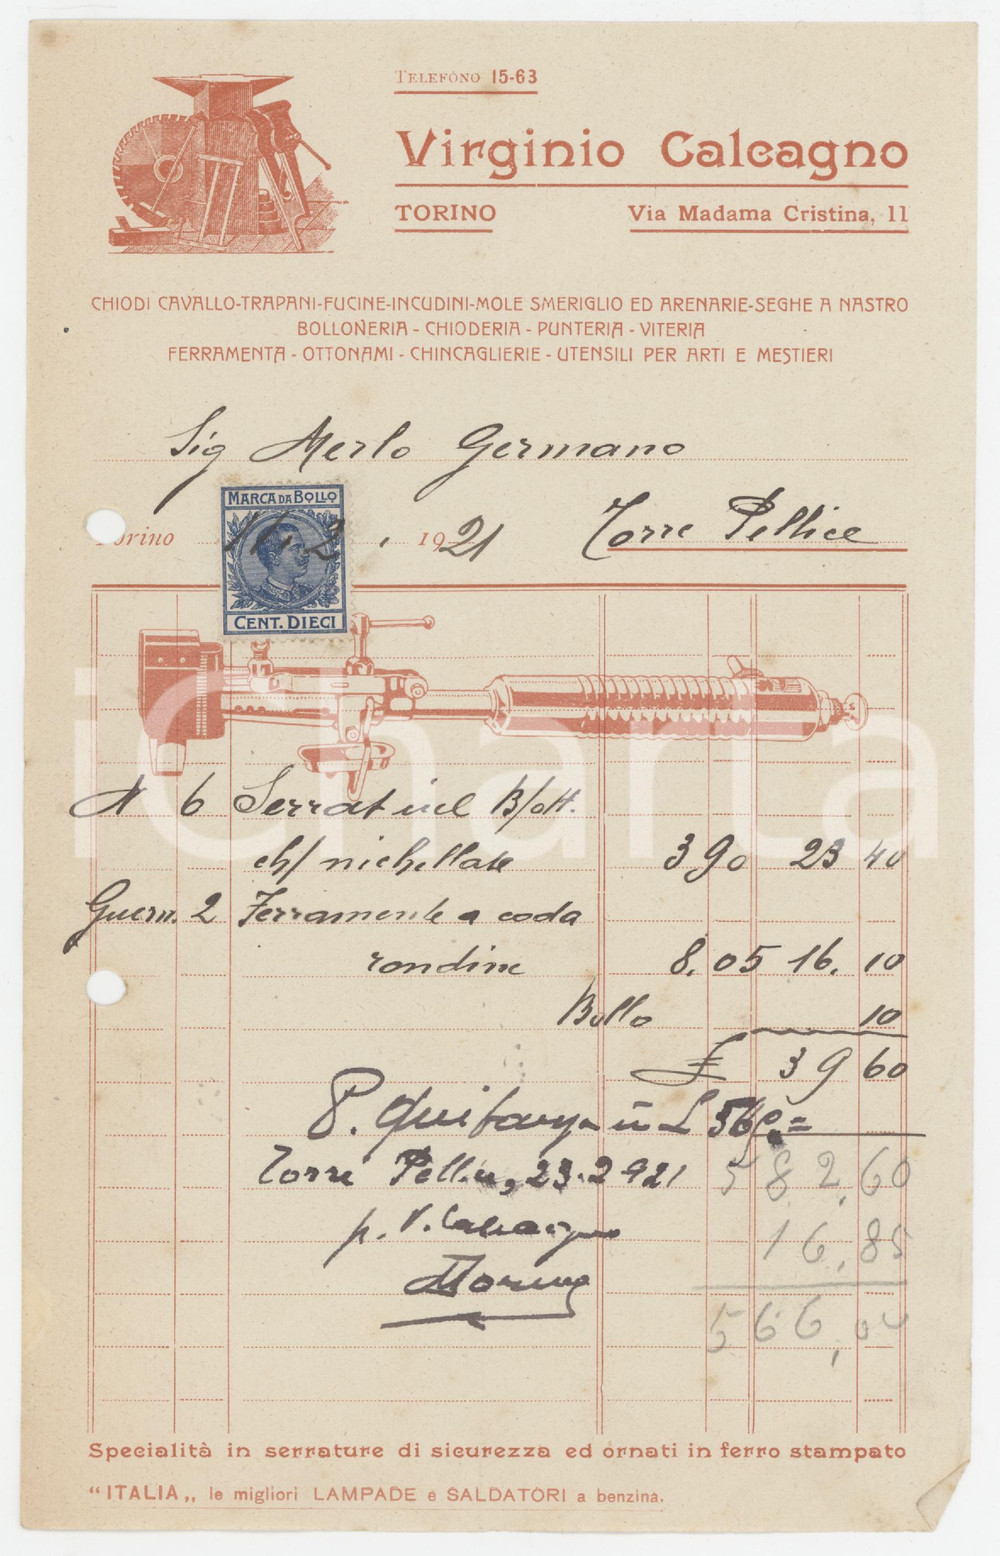 TELEFONO 15-63
Virginio Calcagno
TORINO Via Madama Cristina, 11
CHIODI CAVALLO-TRAPANI-FUCINE-INCUDINI-MOLE SMERIGLIO ED ARENARIE-SEGHE A NASTRO
BOLLONERIA - CHIODERIA - PUNTERIA - VITERIA
FERRAMENTA - OTTONAMI - CHINCAGLIERIE - UTENSILI PER ARTI E MESTIERI
Sig Merlo Germano
MARCA DA BOLLO
Torino 16. 2. 1921 Torre Pellice
CENT. DIECI
iCharta
N 6 Serrat B/ott.
ch/ nichellate 390 23 40
Guern. 2 Ferramente a coda
rondine 8.05 16. 10
Bollo 10
£ 39 60
P. Quitanza in L 566.=
Torre Pellice, 23.2 921 582,60
p. V. Calcagno 16,85
566,00
Specialità in serrature di sicurezza ed ornati in ferro stampato
"ITALIA„ le migliori LAMPADE e SALDATORI a benzina.